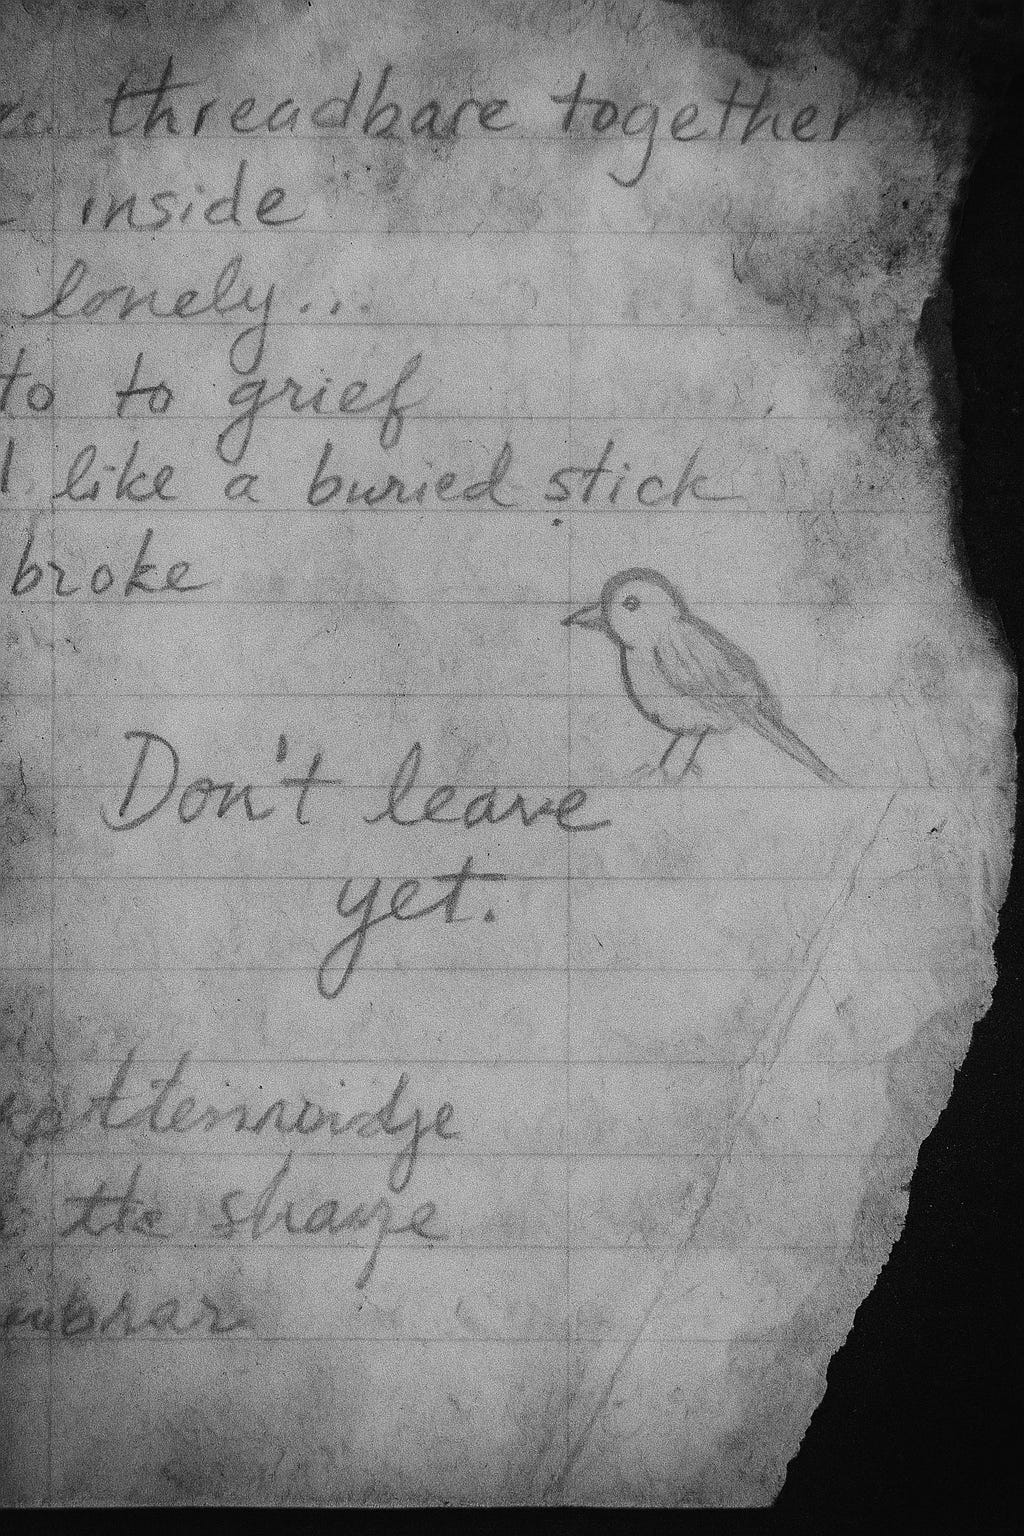 threadbare together
inside
lonely...
to to grief
like a buried stick
broke
Don't leave
yet.
the